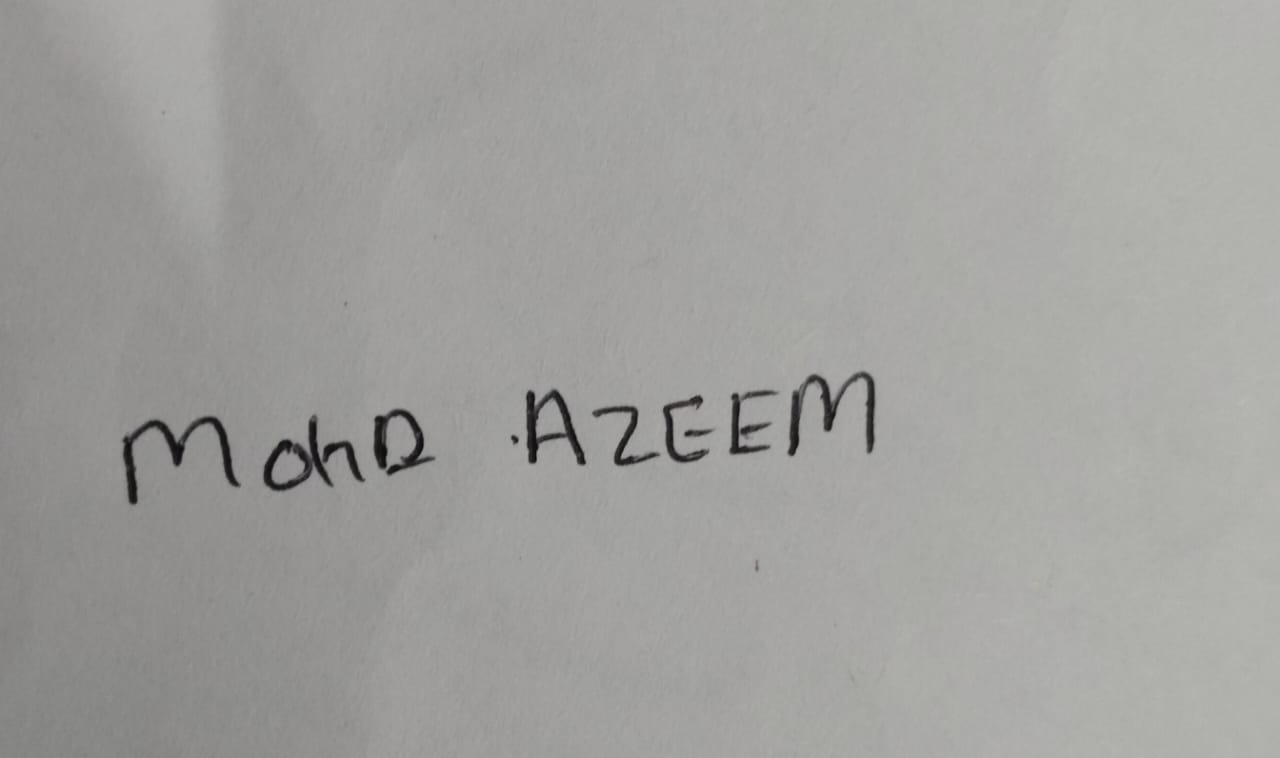 MohD .AZEEM